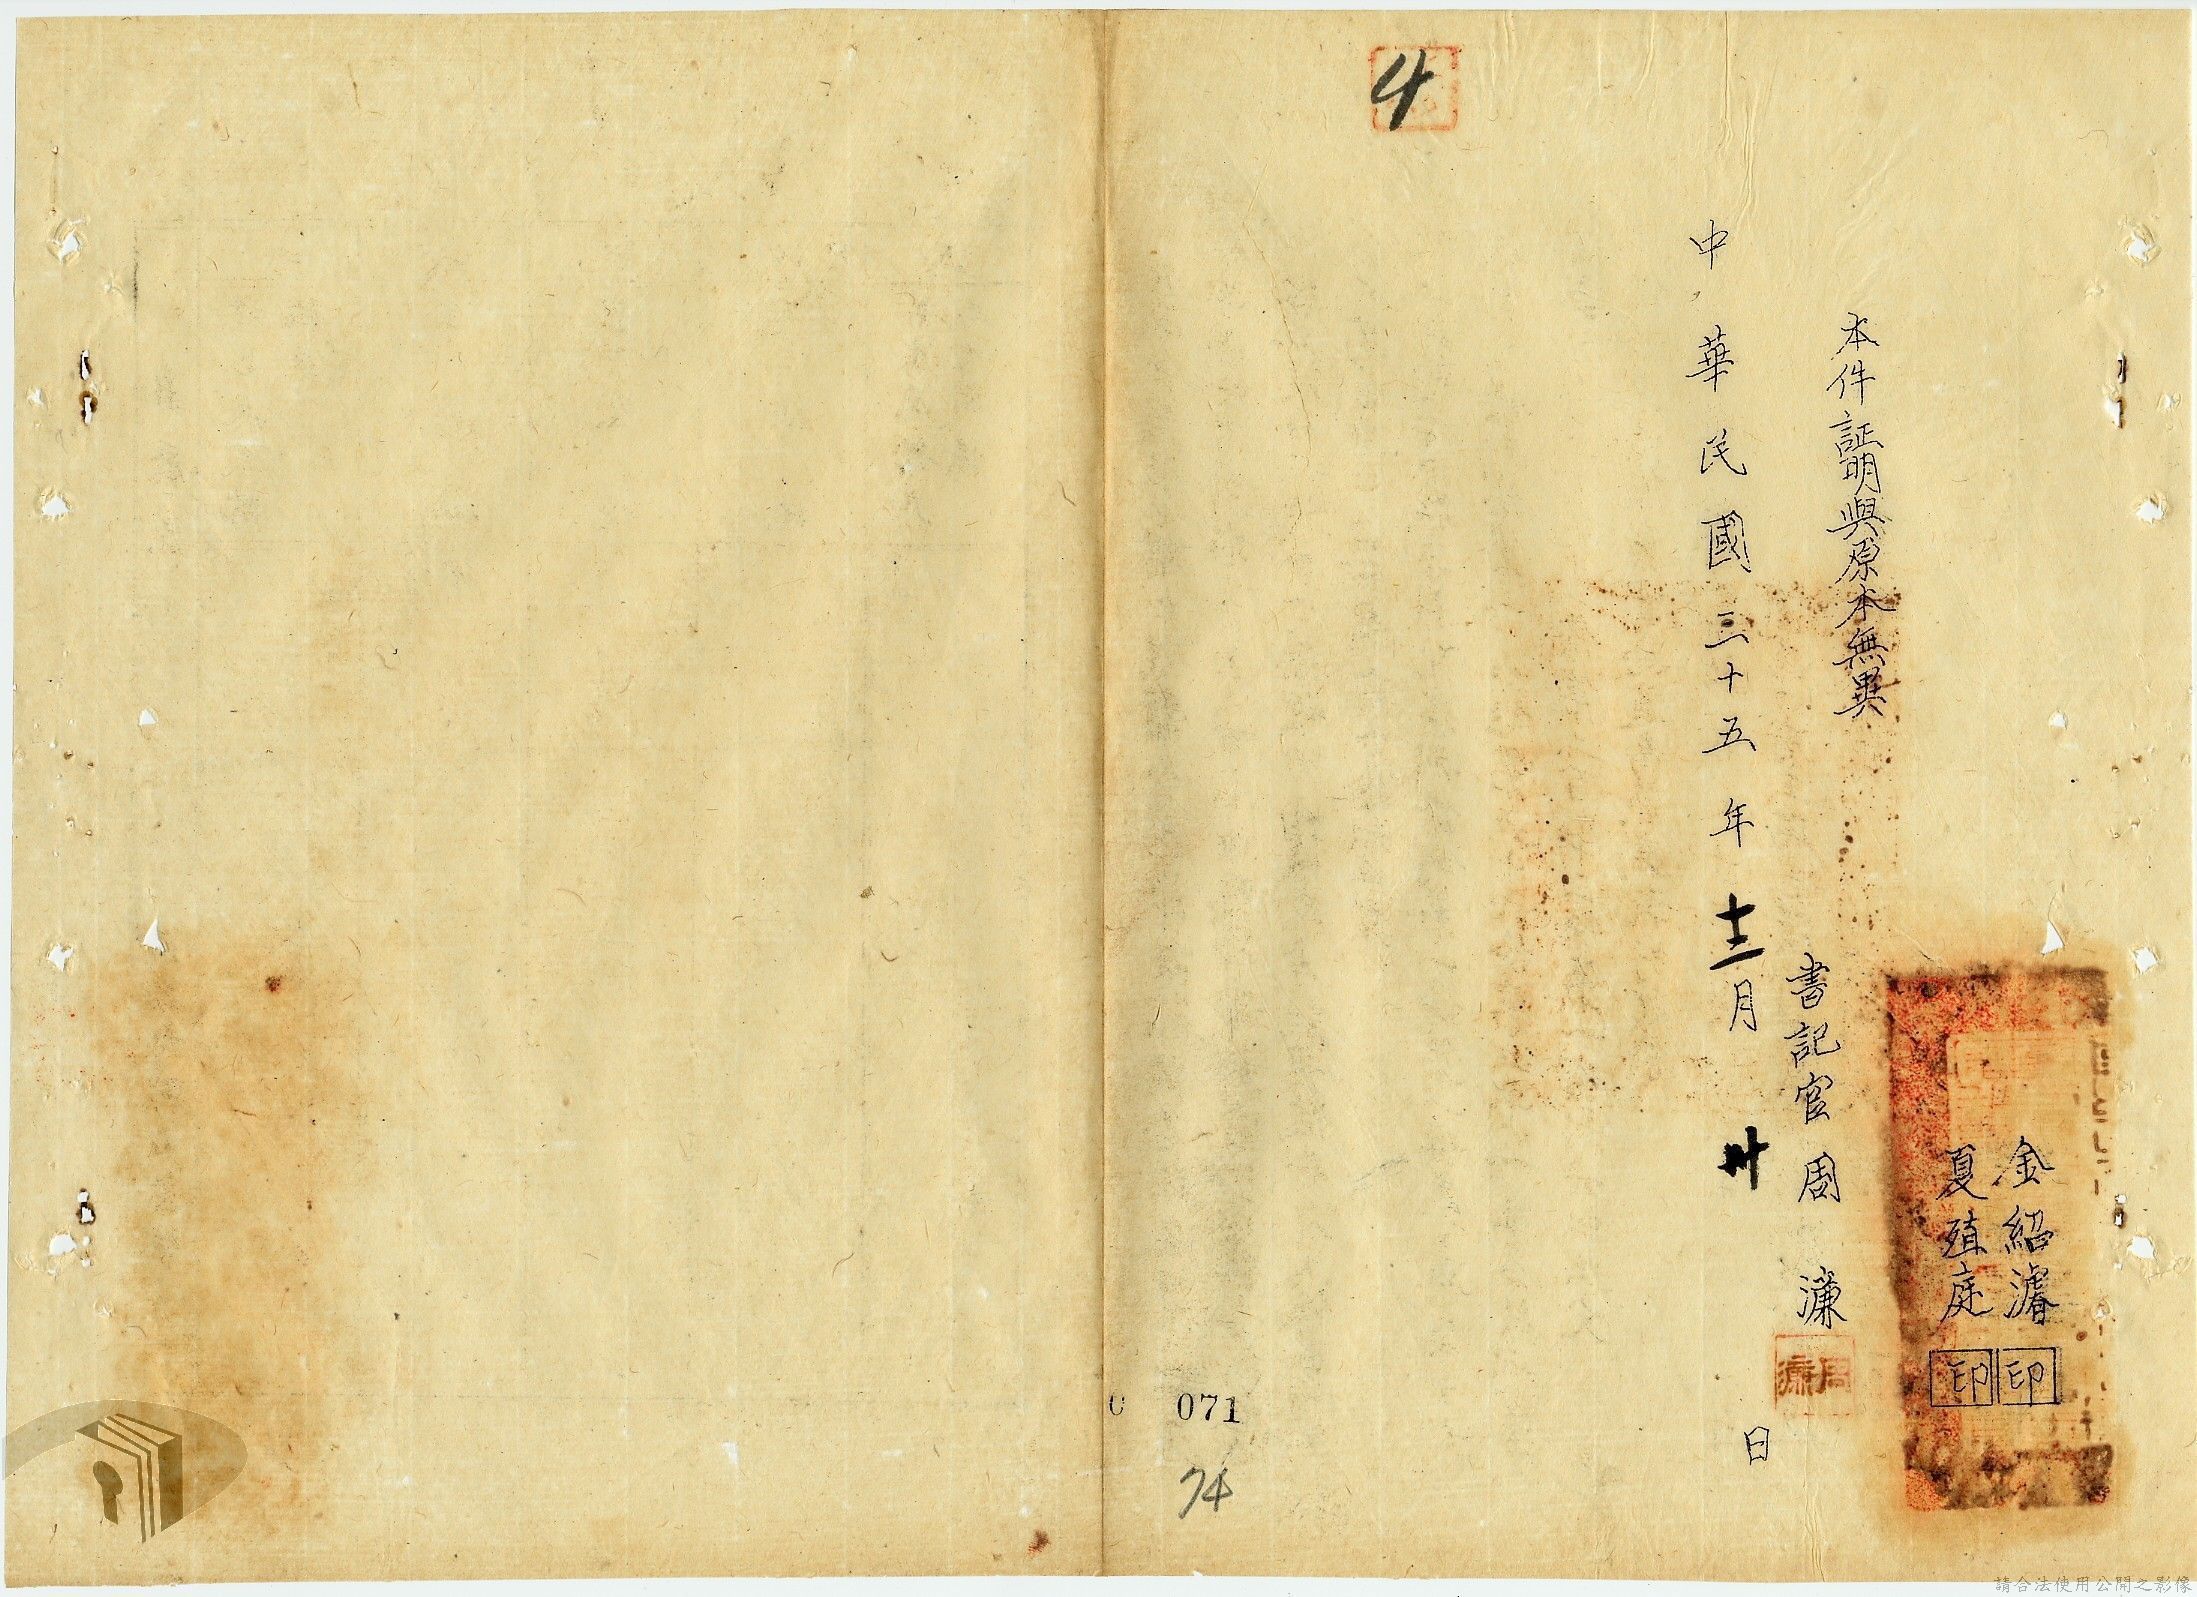 4
金紹濬 印
夏殖庭 印
本件証明與原本無異
書記官周濂
周濂
中華民國三十五年十二月卅日
071
74
請合法使用公開之影像